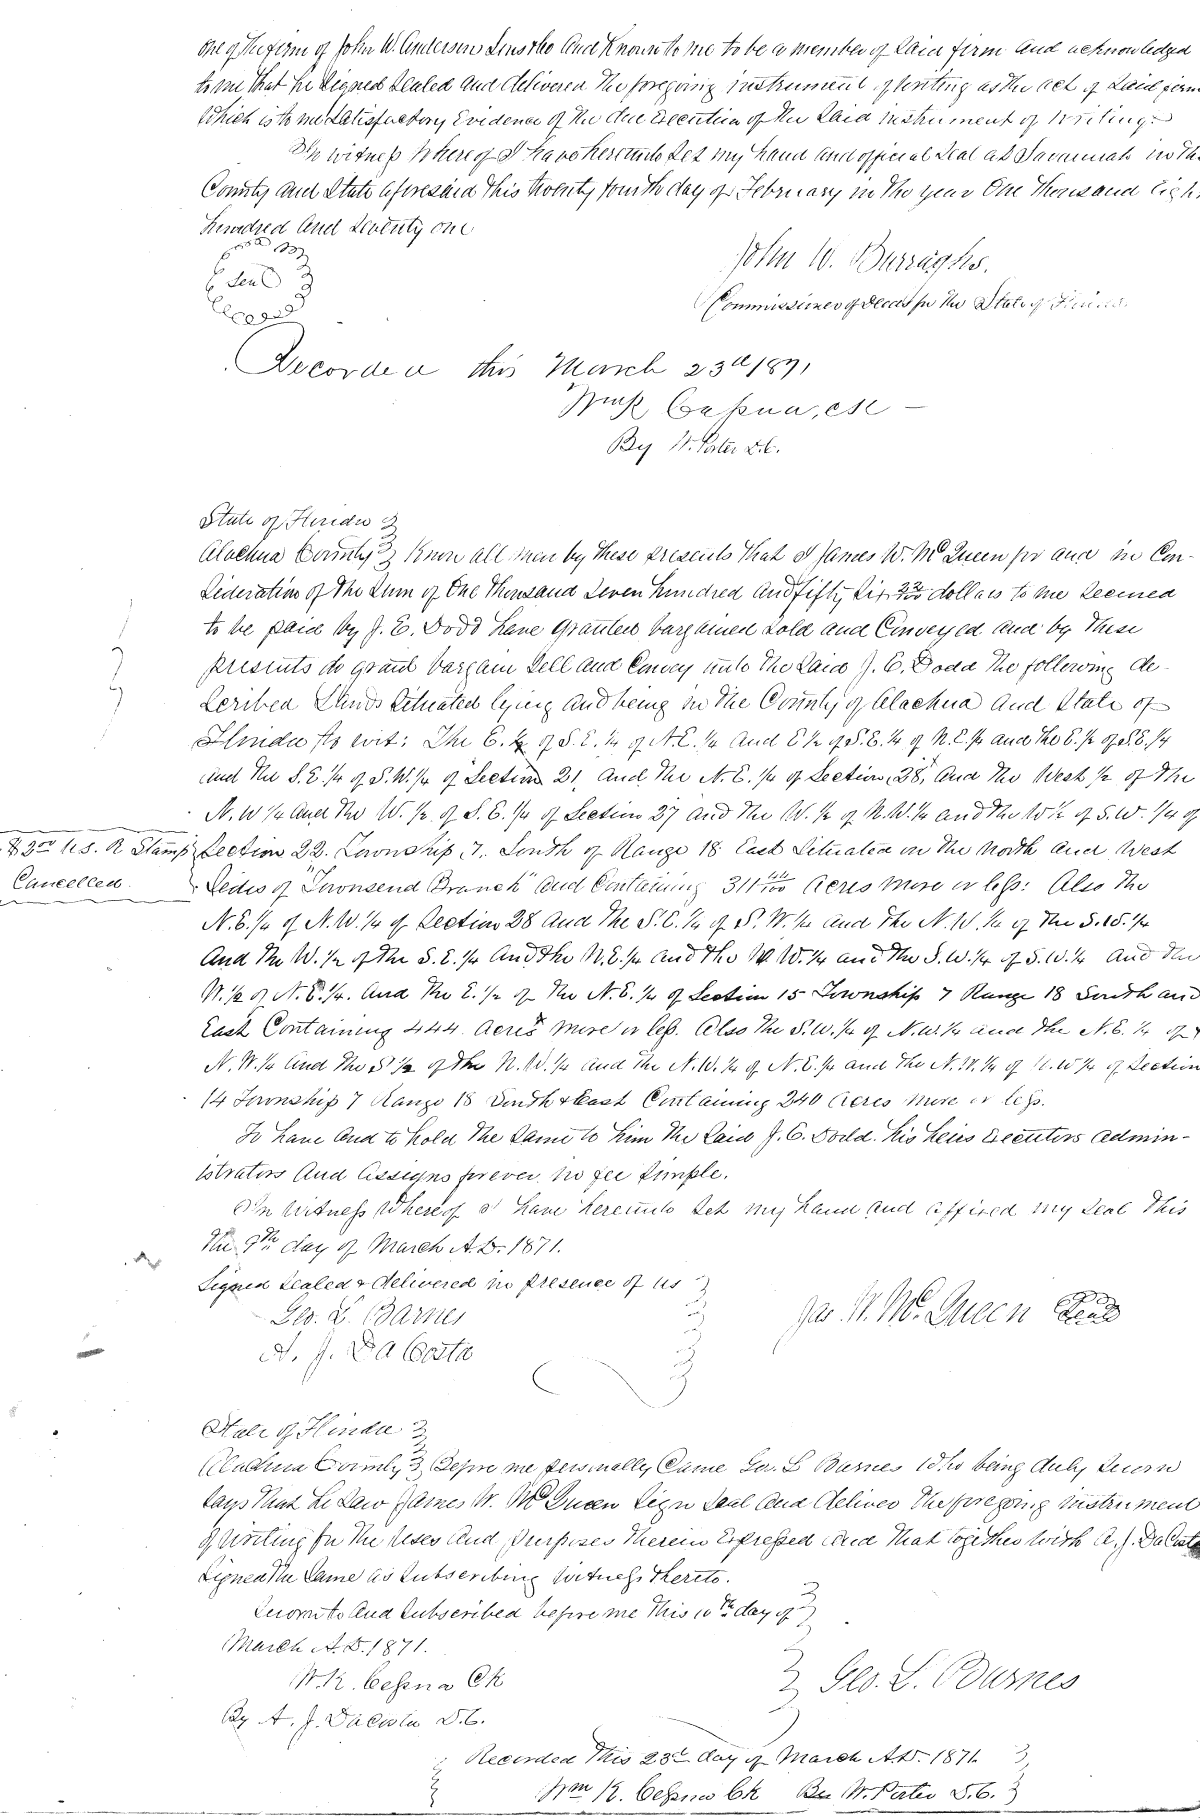 one of the firm of John W. Anderson Sons & Co and Known to me to be a member of Said firm and acknowledged
to me that he Signed Sealed and delivered The foregoing instrument of writing as the act of Said firm
Which is to me Satisfactory Evidence of The due Execution of the Said instrument of writing.
In witness Whereof I have hereunto Set my hand and official Seal at Savannah in The
County and State aforesaid This twenty fourth day of February in The year One Thousand Eight
hundred and Seventy one
Seal
John W. Burroughs.
Commissioner of Deeds for The State of Florida.
Recorded this March 23d 1871
Wm K Cessna, Clk
By W. Porter D.C.
State of Florida
Alachua County Know all men by these presents That I James W. McQueen for and in Con-
sideration of The Sum of One Thousand Seven hundred and fifty Six 22/100 dollars to me Secured
to be paid by J. E. Dodd have granted bargained Sold and Conveyed and by These
presents do grant bargain Sell and Convey unto The Said J. E. Dodd The following de-
scribed Lands Situated lying and being in The County of Alachua and State of
Florida to wit: The E. ½ of S.E. ¼ of N.E. ¼ and E ½ of S.E. ¼ of N.E. ¼ and The E. ½ of S.E. ¼
and The S.E. ¼ of S.W. ¼ of Section 21, and The N.E. ¼ of Section 28, and The West ½ of The
N.W ¼ and The W. ½ of S.E. ¼ of Section 27 and The W. ½ of N.W. ¼ and the W ½ of S.W. ¼ of
$2.00 U.S. R Stamp
Cancelled.
Section 22. Township 7. South of Range 18 East Situated on The north and West
Sides of "Townsend Branch" and Containing 311 44/100 acres more or less: Also The
N.E. ¼ of N.W. ¼ of Section 28 and The S.E. ¼ of S.W. ¼ and The N.W. ¼ of The S.W. ¼
And The W. ½ of The S.E. ¼ And The N.E. ¼ and The N W. ¼ and The S.W. ¼ of S.W. ¼ and The
W. ½ of N.E. ¼. And The E. ½ of The N.E. ¼ of Section 15 Township 7 Range 18 South and
East Containing 444 acres more or less. Also The S.W. ¼ of N.W. ¼ and The N.E. ¼ of
N.W. ¼ and The S ½ of The N.W. ¼ and The N.W. ¼ of N.E. ¼ and The N.W. ¼ of N.W ¼ of Section
14 Township 7 Range 18 South & East Containing 240 acres more or less.
To have and to hold The Same to him The Said J. E. Dodd his heirs Executors admin-
istrators and Assigns forever in fee Simple.
In Witness Whereof I have hereunto Set my hand and affixed my Seal This
The 9th day of March A.D. 1871.
Signed Sealed & delivered in presence of us
Geo. L. Barnes
A. J. Da Costa
Jas. W. McQueen Seal
State of Florida
Alachua County Before me personally Came Geo. L Barnes Who being duly Sworn
Says That he Saw James W. McQueen Sign Seal and deliver The foregoing instrument
of writing for The Uses and purposes Therein Expressed and That together with A. J. DaCosta
Signed The Same as Subscribing Witness Thereto.
Sworn to and Subscribed before me This 10th day of
March A.D. 1871.
W. K. Cessna Clk
By A. J. DaCosta D.C.
Geo. L. Barnes
Recorded This 23d day of March A.D. 1871
Wm K. Cessna Clk By W. Porter D.C.